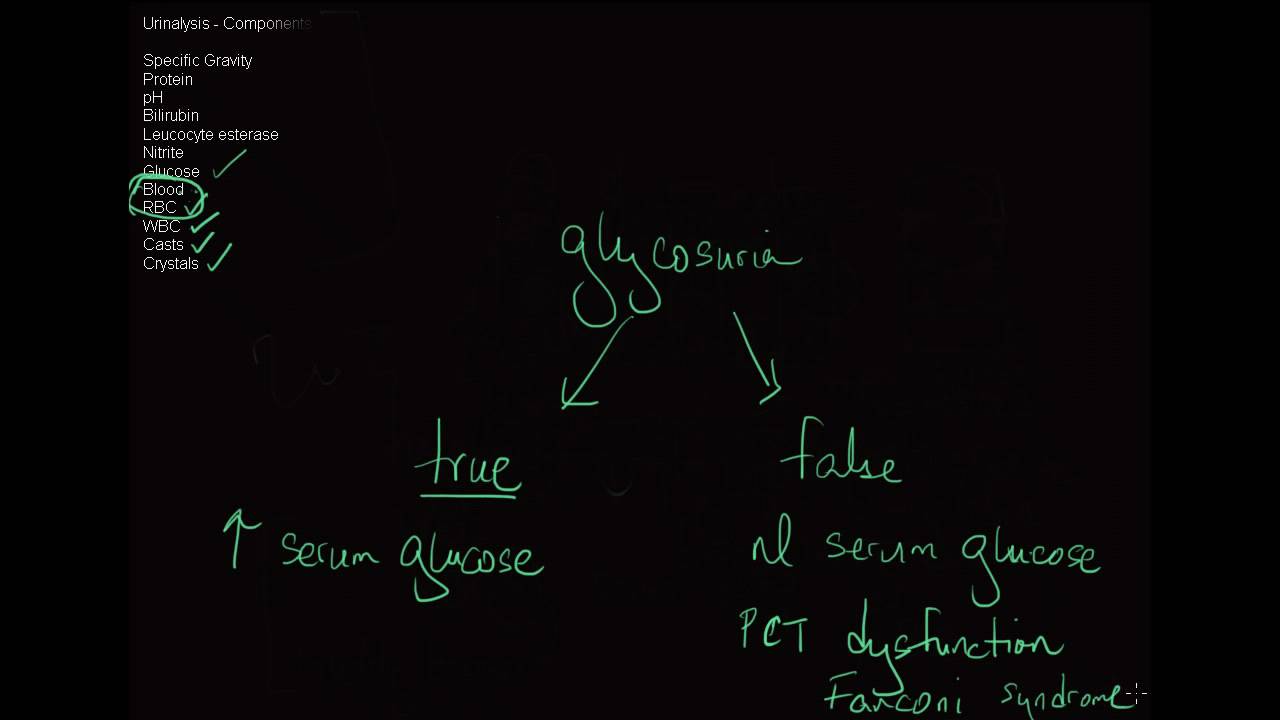 Urinalysis - Components
Specific Gravity
Protein
pH
Bilirubin
Leucocyte esterase
Nitrite
Glucose
Blood
RBC
WBC
Casts
Crystals
glycosuria
true
false
↑ serum glucose
nl serum glucose
PCT dysfunction
Fanconi syndrome